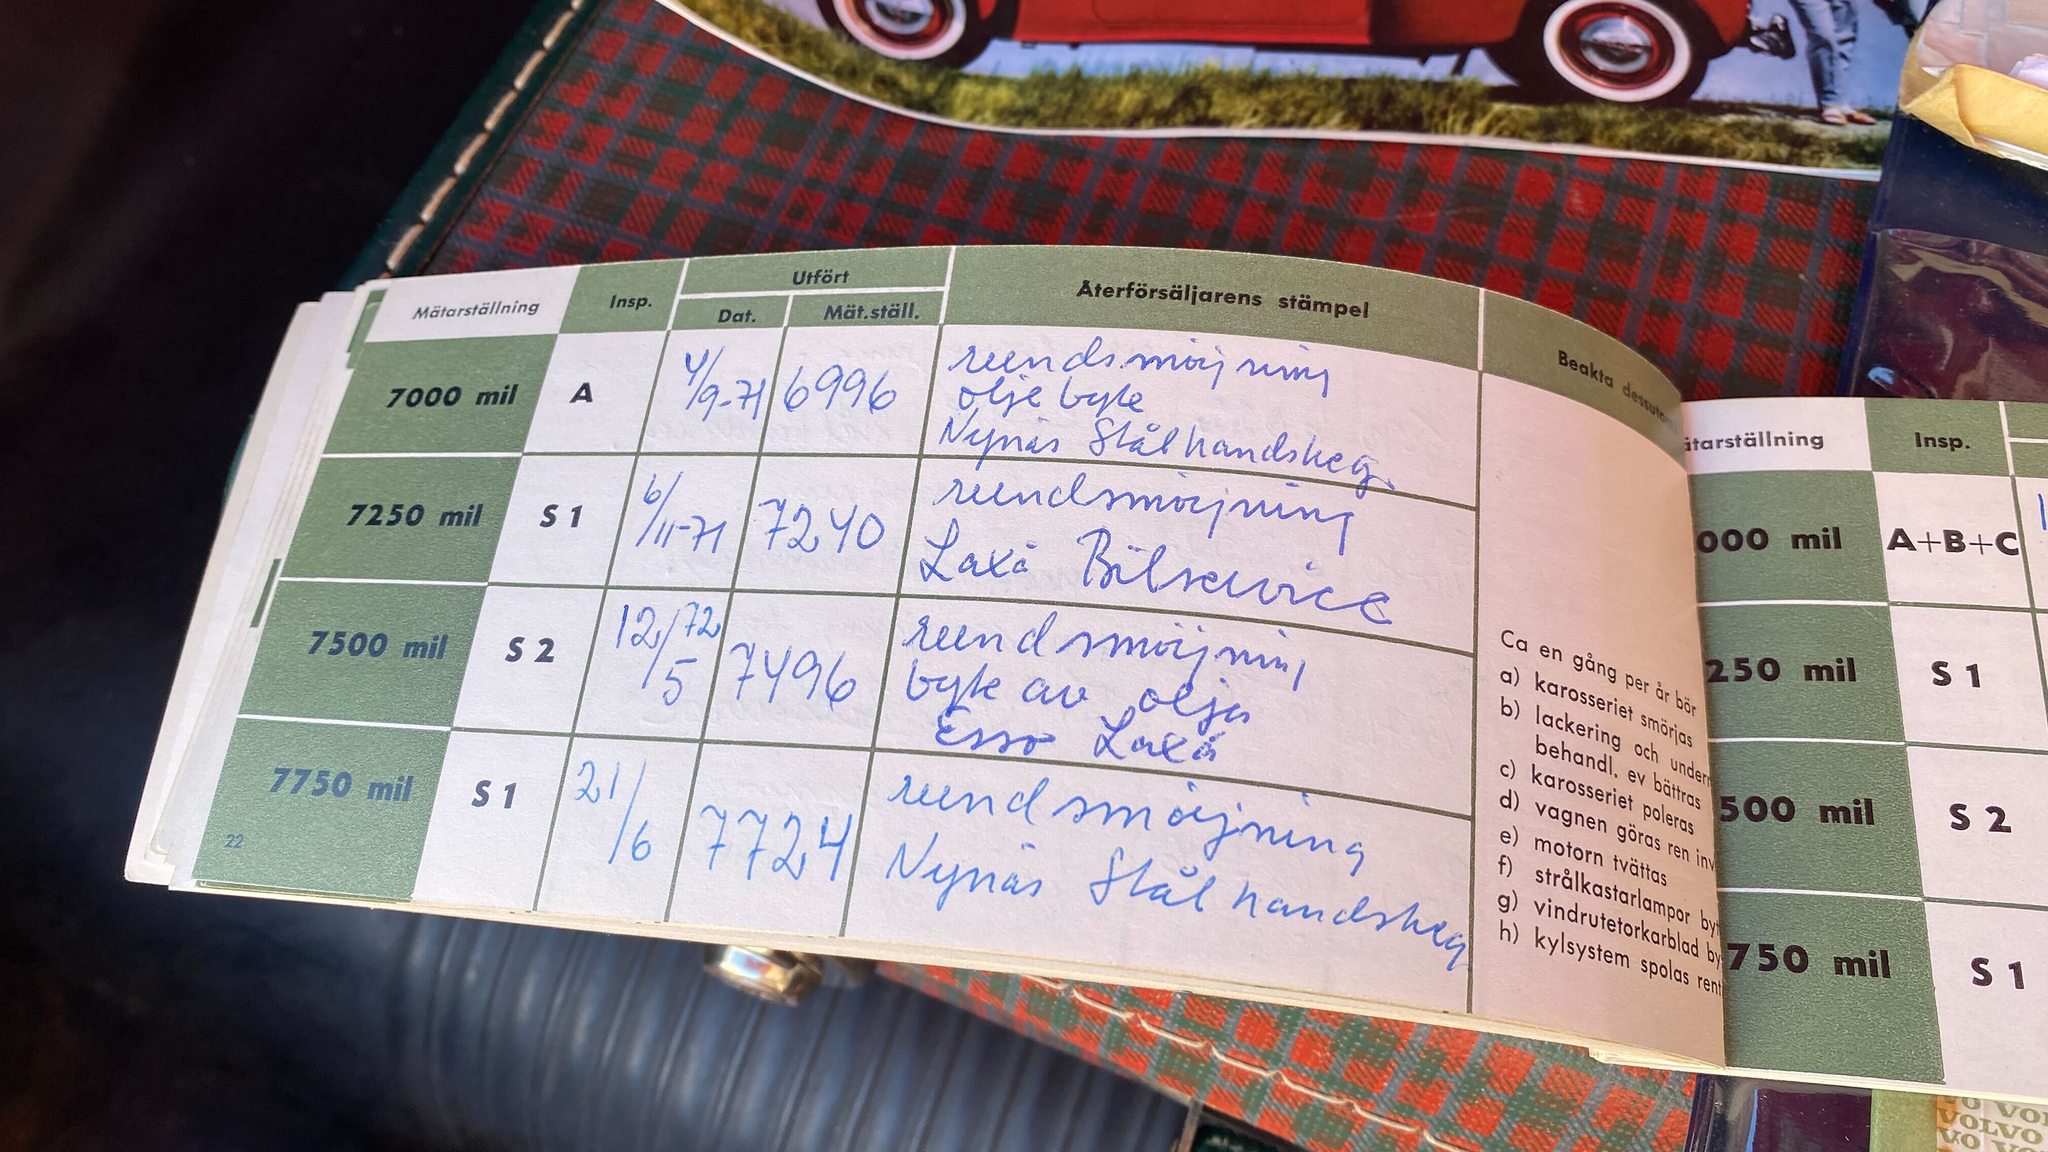 Utfört
Mätarställning Insp. Dat. Mät.ställ. Återförsäljarens stämpel Beakta
7000 mil A 4/9-71 6996 reendsmörjning
olje byte
Nynäs Stålhandskeg.
7250 mil S 1 6/11-71 7240 reendsmörjning
Laxå Bilservice
7500 mil S 2 12/5 72 7496 reendsmörjning
byte av olja
Esso Laxå
7750 mil S 1 21/6 7724 reendsmörjning
Nynäs Stålhandskeg
22
Ca en gång per år bör
a) karosseriet smörjas
b) lackering och underr
behandl. ev bättras
c) karosseriet poleras
d) vagnen göras ren inv
e) motorn tvättas
f) strålkastarlampor byt
g) vindrutetorkarblad by
h) kylsystem spolas rent
ätarställning Insp.
000 mil A+B+C
250 mil S 1
500 mil S 2
750 mil S 1
VOLVO